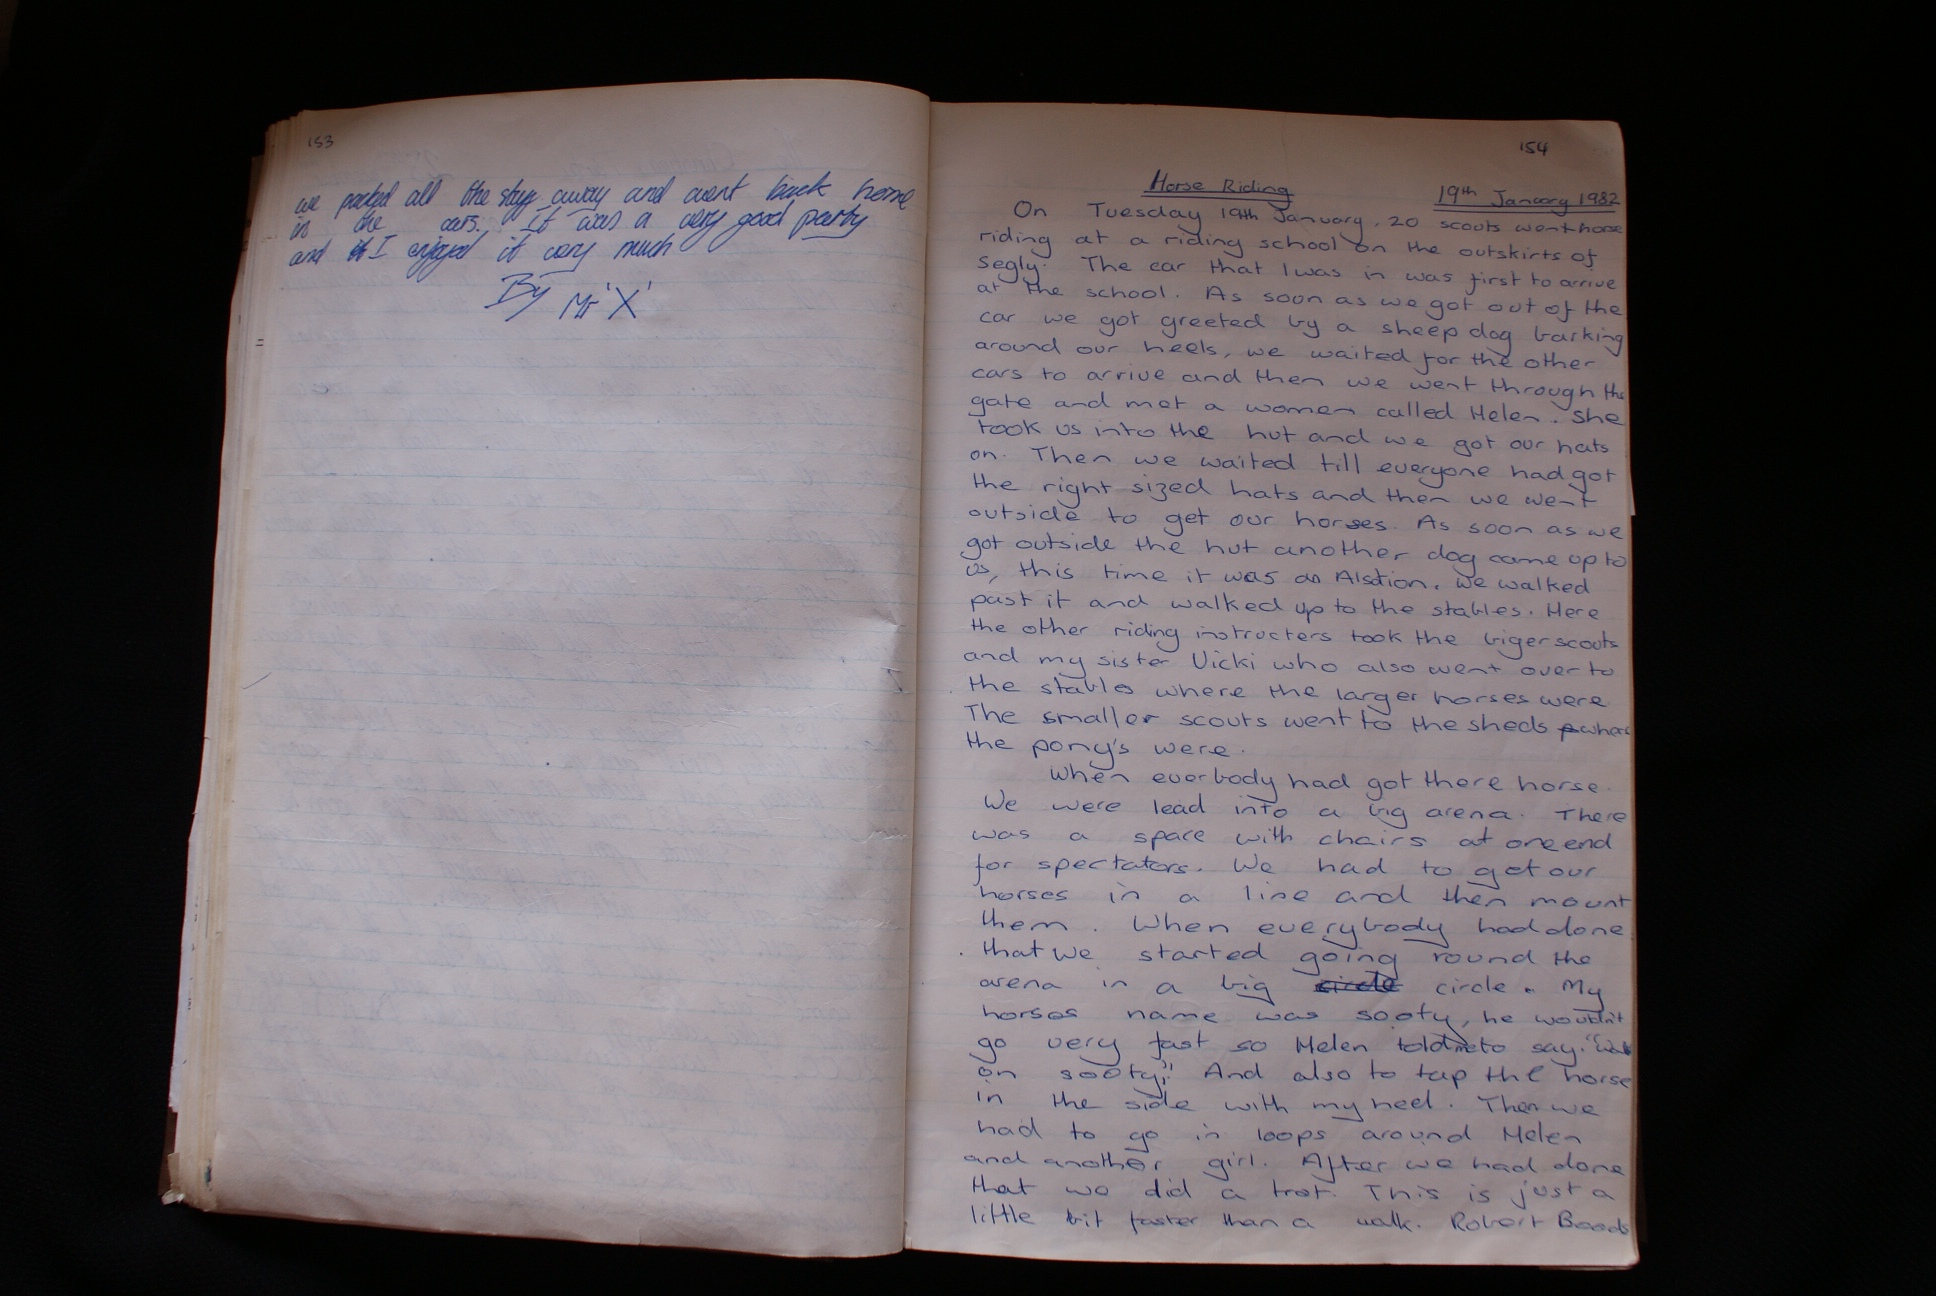 153
we packed all the stuff away and went back home
in the cars. It was a very good party
and I enjoyed it very much
By Mr 'X'
154
Horse Riding
19th January 1982
On Tuesday 19th January, 20 scouts went horse
riding at a riding school on the outskirts of
Segly. The car that I was in was first to arrive
at the school. As soon as we got out of the
car we got greeted by a sheep dog barking
around our heels, we waited for the other
cars to arrive and then we went through the
gate and met a women called Helen. She
took us into the hut and we got our hats
on. Then we waited till everyone had got
the right sized hats and then we went
outside to get our horses. As soon as we
got outside the hut another dog came up to
us, this time it was an Alstion. We walked
past it and walked up to the stables. Here
the other riding instructers took the biger scouts
and my sister Vicki who also went over to
the stables where the larger horses were
The smaller scouts went to the sheds where
the pony's were.
When everbody had got there horse.
We were lead into a big arena. There
was a space with chairs at one end
for spectators. We had to get our
horses in a line and then mount
them. When everybody had done
that we started going round the
arena in a big circle circle. My
horses name was sooty, he wouldn't
go very fast so Helen told me to say: "Walk
on sooty!" And also to tap the horse
in the side with my heel. Then we
had to go in loops around Helen
and another girl. After we had done
that we did a trot. This is just a
little bit faster than a walk. Robert